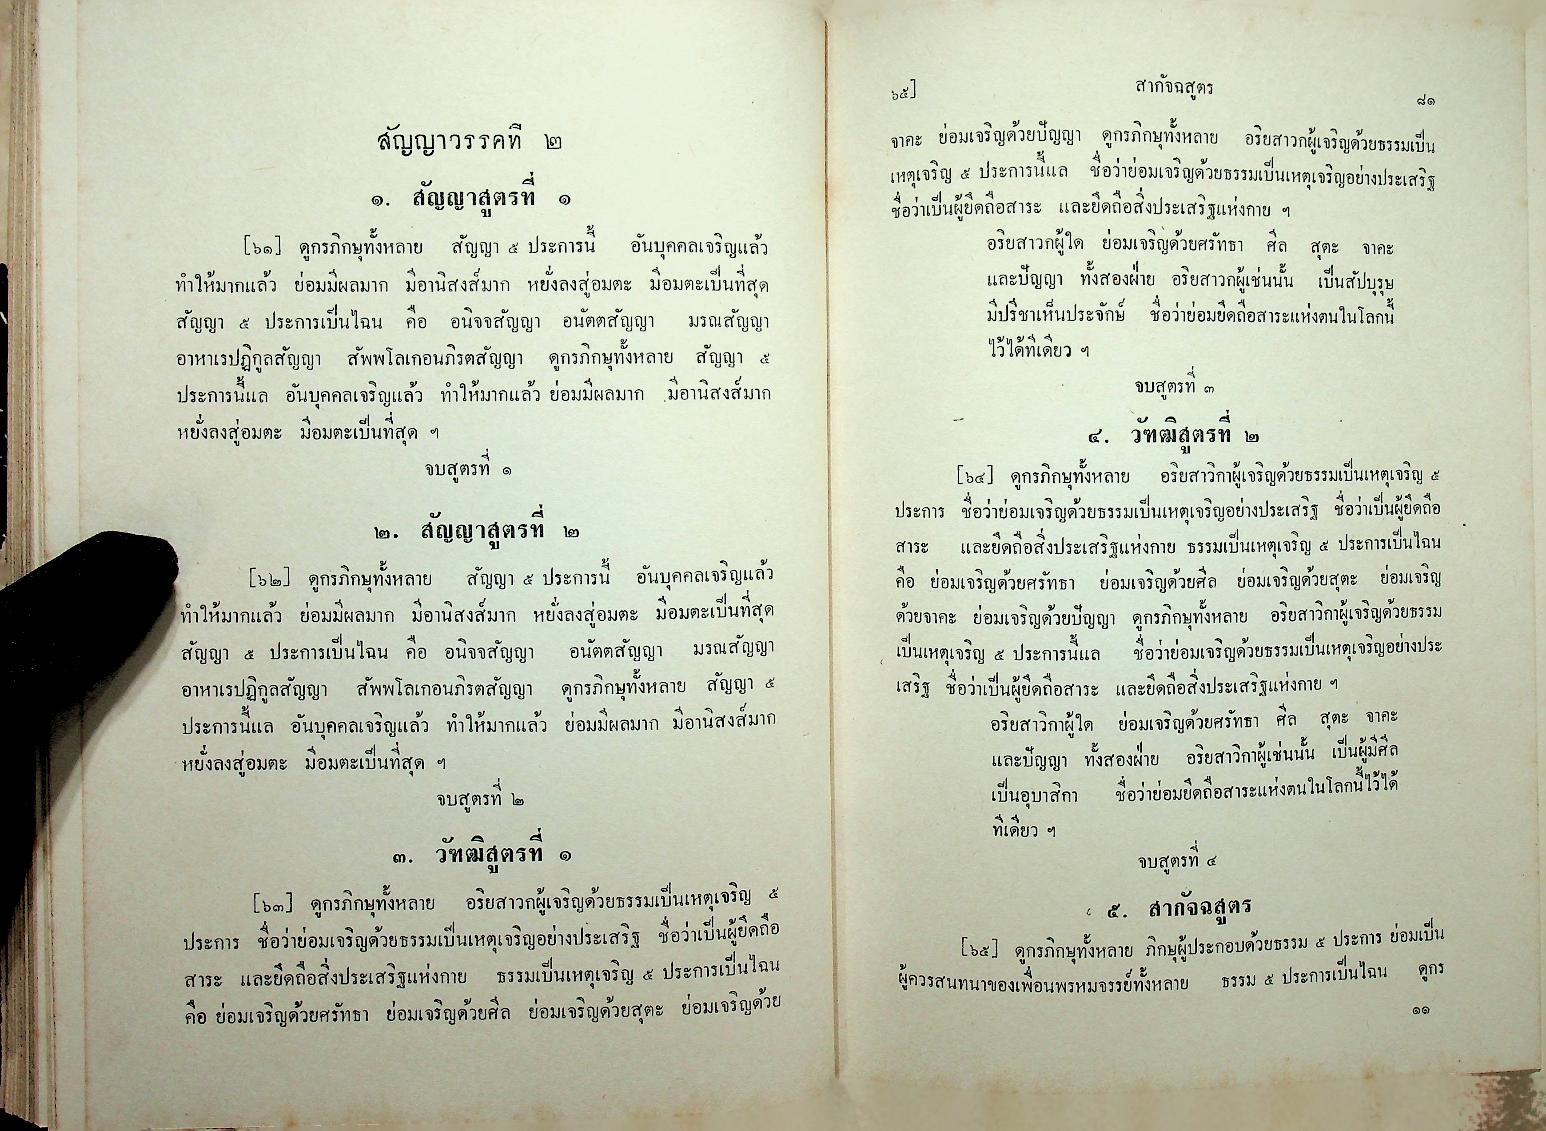 สัญญาวรรคที่ ๒
๑. สัญญาสูตรที่ ๑
[๖๑] ดูกรภิกษุทั้งหลาย สัญญา ๕ ประการนี้ อันบุคคลเจริญแล้ว
ทำให้มากแล้ว ย่อมมีผลมาก มีอานิสงส์มาก หยั่งลงสู่อมตะ มีอมตะเป็นที่สุด
สัญญา ๕ ประการเป็นไฉน คือ อนิจจสัญญา อนัตตสัญญา มรณสัญญา
อาหาเรปฏิกูลสัญญา สัพพโลเกอนภิรตสัญญา ดูกรภิกษุทั้งหลาย สัญญา ๕
ประการนี้แล อันบุคคลเจริญแล้ว ทำให้มากแล้ว ย่อมมีผลมาก มีอานิสงส์มาก
หยั่งลงสู่อมตะ มีอมตะเป็นที่สุด ฯ
จบสูตรที่ ๑
๒. สัญญาสูตรที่ ๒
[๖๒] ดูกรภิกษุทั้งหลาย สัญญา ๕ ประการนี้ อันบุคคลเจริญแล้ว
ทำให้มากแล้ว ย่อมมีผลมาก มีอานิสงส์มาก หยั่งลงสู่อมตะ มีอมตะเป็นที่สุด
สัญญา ๕ ประการเป็นไฉน คือ อนิจจสัญญา อนัตตสัญญา มรณสัญญา
อาหาเรปฏิกูลสัญญา สัพพโลเกอนภิรตสัญญา ดูกรภิกษุทั้งหลาย สัญญา ๕
ประการนี้แล อันบุคคลเจริญแล้ว ทำให้มากแล้ว ย่อมมีผลมาก มีอานิสงส์มาก
หยั่งลงสู่อมตะ มีอมตะเป็นที่สุด ฯ
จบสูตรที่ ๒
๓. วัฑฒิสูตรที่ ๑
[๖๓] ดูกรภิกษุทั้งหลาย อริยสาวกผู้เจริญด้วยธรรมเป็นเหตุเจริญ ๕
ประการ ชื่อว่าย่อมเจริญด้วยธรรมเป็นเหตุเจริญอย่างประเสริฐ ชื่อว่าเป็นผู้ยึดถือ
สาระ และยึดถือสิ่งประเสริฐแห่งกาย ธรรมเป็นเหตุเจริญ ๕ ประการเป็นไฉน
คือ ย่อมเจริญด้วยศรัทธา ย่อมเจริญด้วยศีล ย่อมเจริญด้วยสุตะ ย่อมเจริญด้วย
๖๕] สากัจฉสูตร ๘๑
จาคะ ย่อมเจริญด้วยปัญญา ดูกรภิกษุทั้งหลาย อริยสาวกผู้เจริญด้วยธรรมเป็น
เหตุเจริญ ๕ ประการนี้แล ชื่อว่าย่อมเจริญด้วยธรรมเป็นเหตุเจริญอย่างประเสริฐ
ชื่อว่าเป็นผู้ยึดถือสาระ และยึดถือสิ่งประเสริฐแห่งกาย ฯ
อริยสาวกผู้ใด ย่อมเจริญด้วยศรัทธา ศีล สุตะ จาคะ
และปัญญา ทั้งสองฝ่าย อริยสาวกผู้เช่นนั้น เป็นสัปบุรุษ
มีปรีชาเห็นประจักษ์ ชื่อว่าย่อมยึดถือสาระแห่งตนในโลกนี้
ไว้ได้ทีเดียว ฯ
จบสูตรที่ ๓
๔. วัฑฒิสูตรที่ ๒
[๖๔] ดูกรภิกษุทั้งหลาย อริยสาวิกาผู้เจริญด้วยธรรมเป็นเหตุเจริญ ๕
ประการ ชื่อว่าย่อมเจริญด้วยธรรมเป็นเหตุเจริญอย่างประเสริฐ ชื่อว่าเป็นผู้ยึดถือ
สาระ และยึดถือสิ่งประเสริฐแห่งกาย ธรรมเป็นเหตุเจริญ ๕ ประการเป็นไฉน
คือ ย่อมเจริญด้วยศรัทธา ย่อมเจริญด้วยศีล ย่อมเจริญด้วยสุตะ ย่อมเจริญ
ด้วยจาคะ ย่อมเจริญด้วยปัญญา ดูกรภิกษุทั้งหลาย อริยสาวิกาผู้เจริญด้วยธรรม
เป็นเหตุเจริญ ๕ ประการนี้แล ชื่อว่าย่อมเจริญด้วยธรรมเป็นเหตุเจริญอย่างประ
เสริฐ ชื่อว่าเป็นผู้ยึดถือสาระ และยึดถือสิ่งประเสริฐแห่งกาย ฯ
อริยสาวิกาผู้ใด ย่อมเจริญด้วยศรัทธา ศีล สุตะ จาคะ
และปัญญา ทั้งสองฝ่าย อริยสาวิกาผู้เช่นนั้น เป็นผู้มีศีล
เป็นอุบาสิกา ชื่อว่าย่อมยึดถือสาระแห่งตนในโลกนี้ไว้ได้
ทีเดียว ฯ
จบสูตรที่ ๔
๕. สากัจฉสูตร
[๖๕] ดูกรภิกษุทั้งหลาย ภิกษุผู้ประกอบด้วยธรรม ๕ ประการ ย่อมเป็น
ผู้ควรสนทนาของเพื่อนพรหมจรรย์ทั้งหลาย ธรรม ๕ ประการเป็นไฉน ดูกร
๑๑